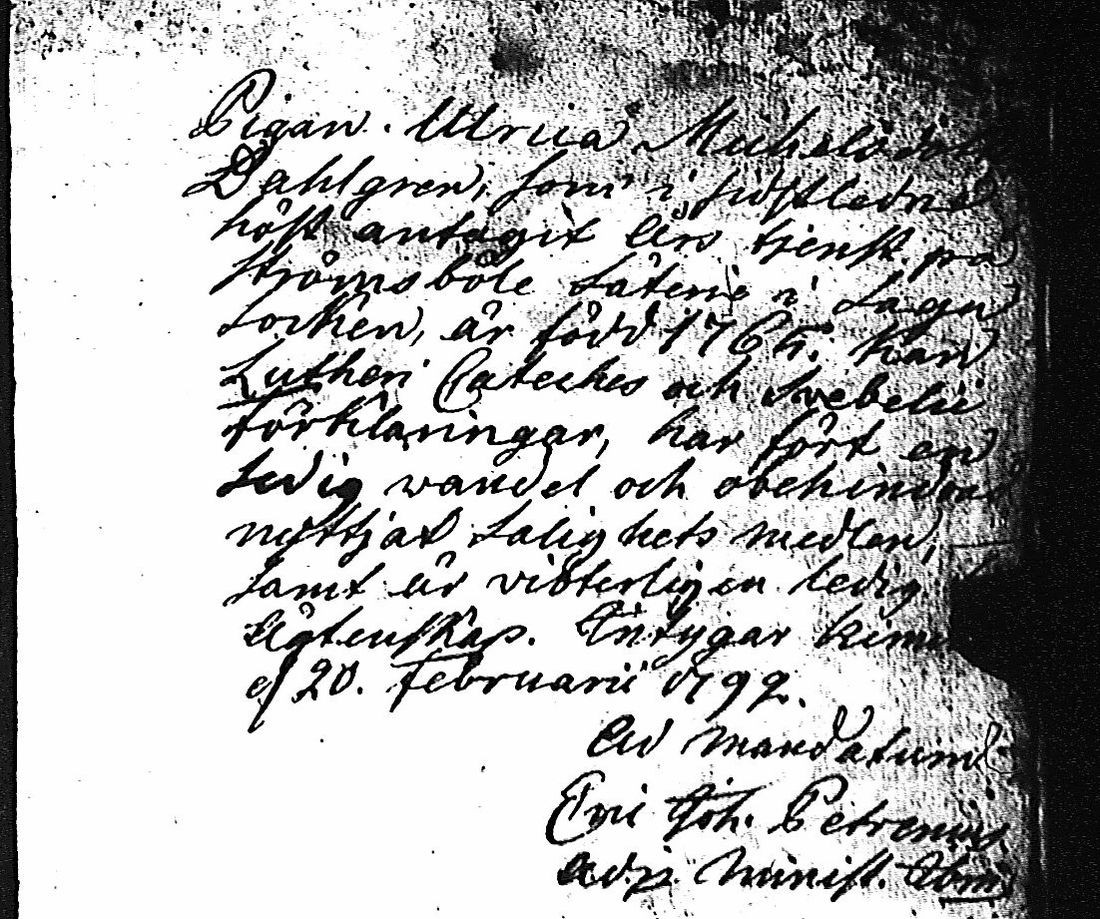 Pigan. Ulrica Michelsdotter
Dahlgren, som i sidstledne
höst antagit års tjenst på
Strömsböle Säterie i Sagu
Socken, är född 1765. kan
Lutheri Cateches och Svebelii
Förklaringar, har fört en
sedig wandel och obehindrat
nyttjat Salighets medlen,
samt är vitterligen ledig
Ägtenskap. Intygar Kimi
d 20. Februarii 1792.
Ad mandatum
Joh. Petrenius
Adj. Minist.